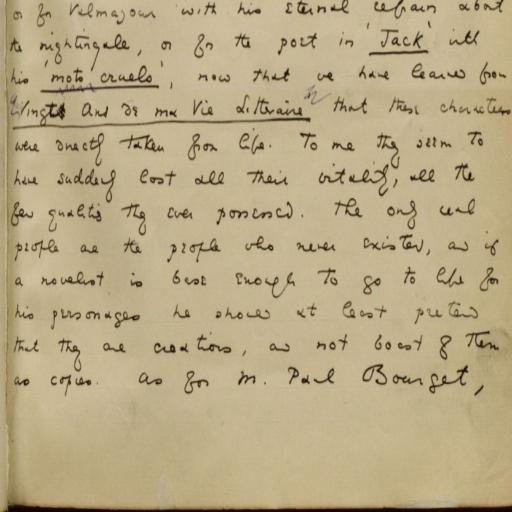 or for Valmajour with his eternal refrain about
the nightingale, or for the poet in 'Jack' with
his 'mots cruels', now that we have learned from
Vingt Ans de ma Vie Littéraire that these characters
were directly taken from life. To me they seem to
have suddenly lost all their vitality, all the
few qualities they ever possessed. The only real
people are the people who never existed, and if
a novelist is base enough to go to life for
his personages he should at least pretend
that they are creations, and not boast of them
as copies. As for M. Paul Bourget,